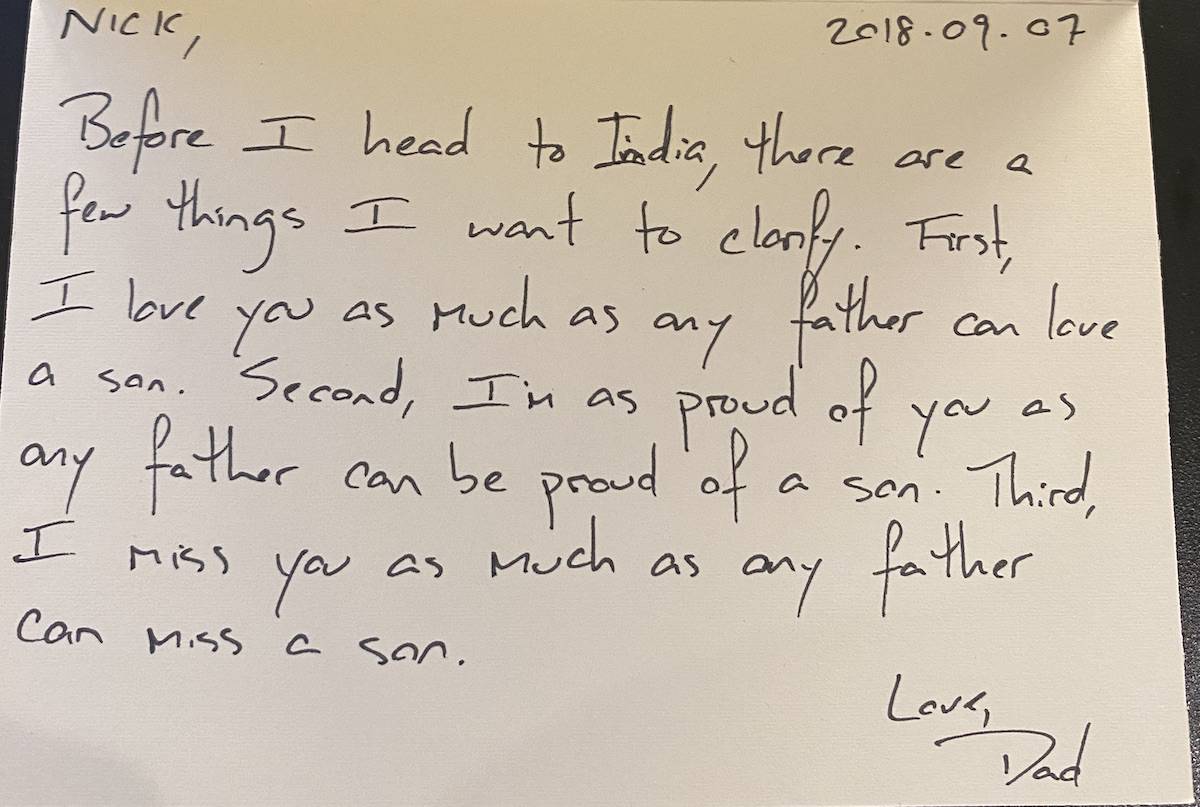 NICK,
2018.09.07
Before I head to India, there are a
few things I want to clarify. First,
I love you as much as any father can love
a son. Second, I'm as proud of you as
any father can be proud of a son. Third,
I miss you as much as any father
can miss a son.
Love,
Dad